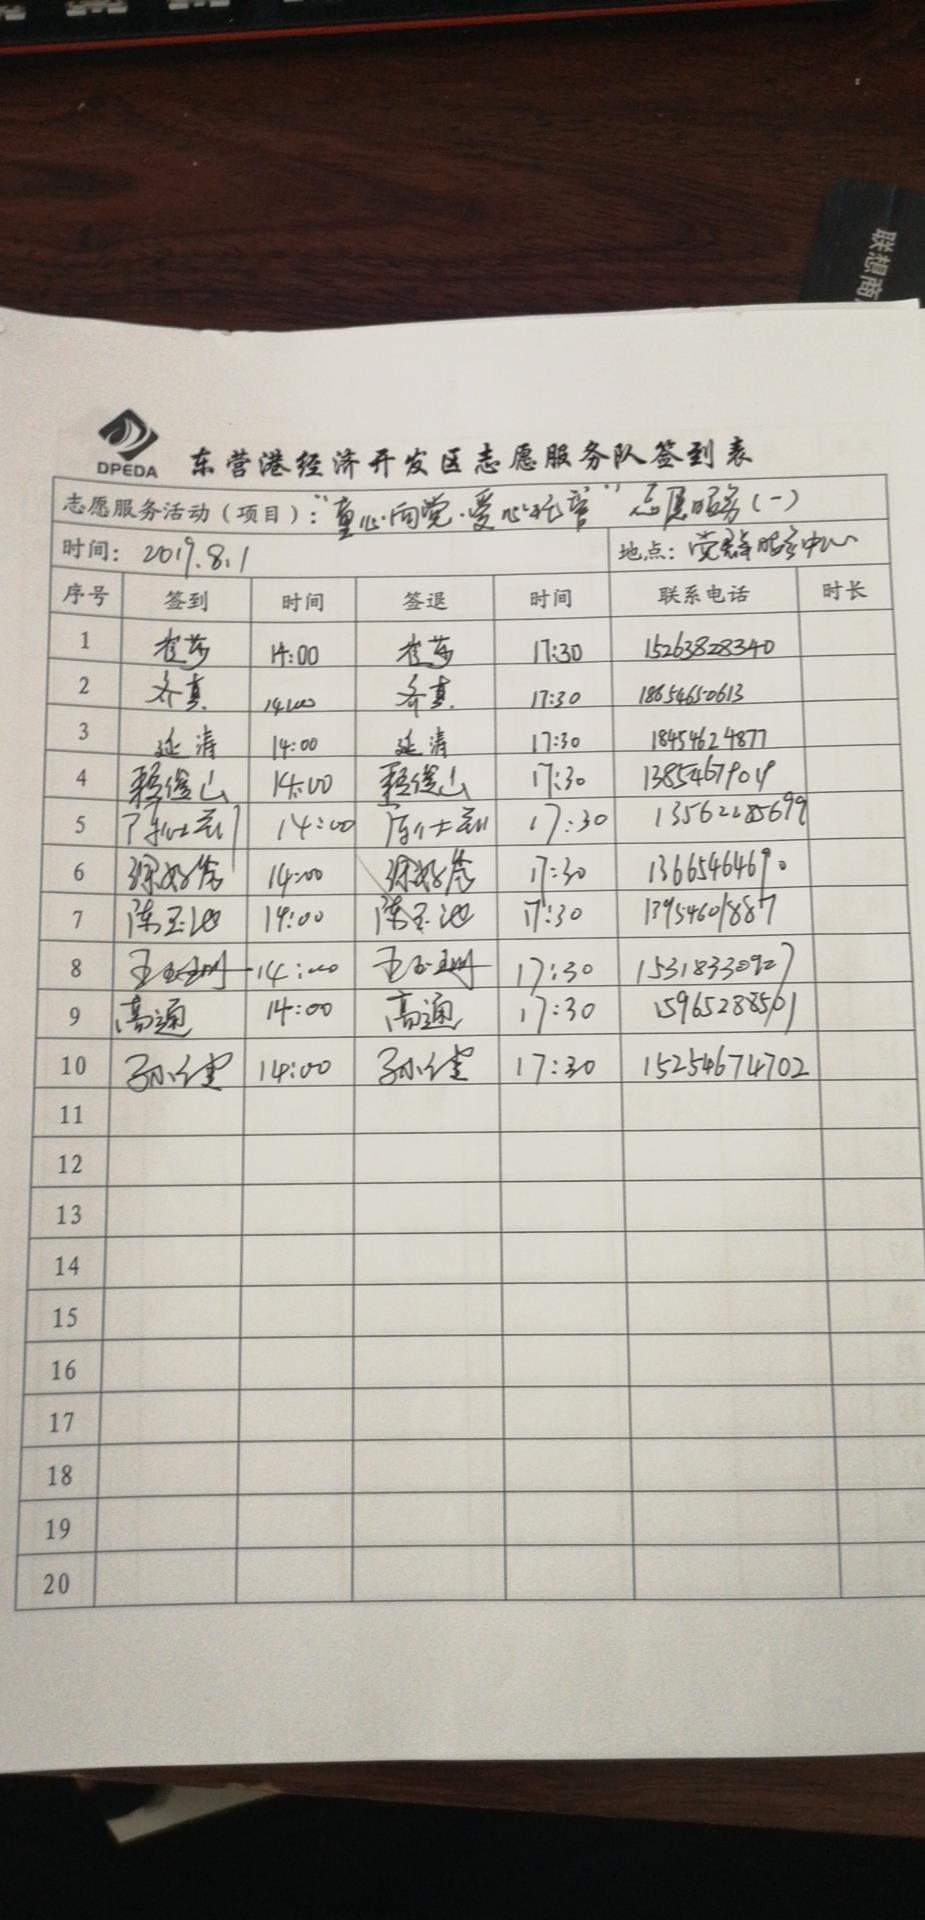 联想商
DPEDA 东营港经济开发区志愿服务队签到表
志愿服务活动（项目）：“童心向党·爱心托管”志愿服务（一）
时间：2019.8.1 地点：党群服务中心
序号 签到 时间 签退 时间 联系电话 时长
1 崔莎 14:00 崔莎 17:30 15263828340
2 齐真 14:00 齐真 17:30 18654650613
3 延涛 14:00 延涛 17:30 18454624877
4 赖俊山 14:00 赖俊山 17:30 13854679019
5 14:00 17:30 13562285699
6 14:00 17:30 13665464690
7 陈玉池 14:00 陈玉池 17:30 13954601887
8 14:00 17:30 15318330927
9 高通 14:00 高通 17:30 15965288501
10 孙健 14:00 孙健 17:30 15254674702
11
12
13
14
15
16
17
18
19
20